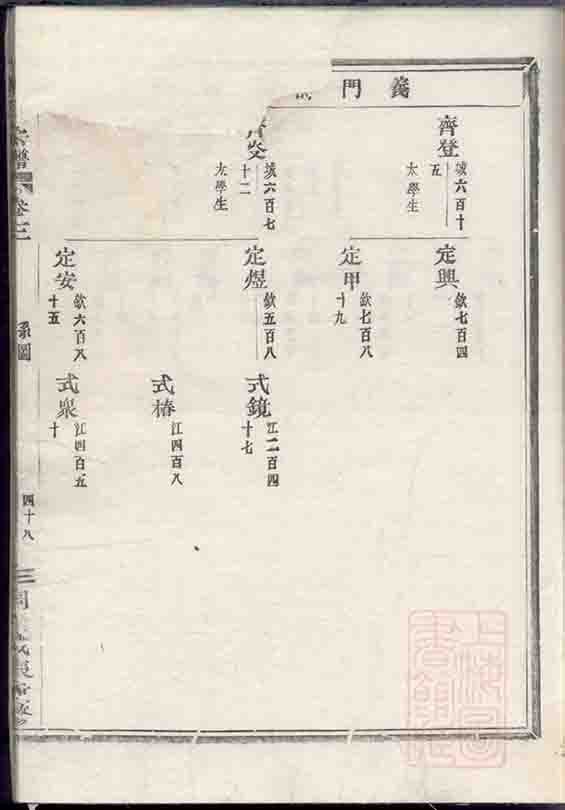 義門
齊登
城六百十
五
太學生
定興
欽七百四
定甲
欽七百八
十九
城六百七
十二
太學生
定煜
欽五百八
式鏡
江二百四
十七
式椿
江四百八
定安
欽六百八
十五
式眾
江四百五
十
譜
卷三
系圖
四十八
上海圖
書館藏